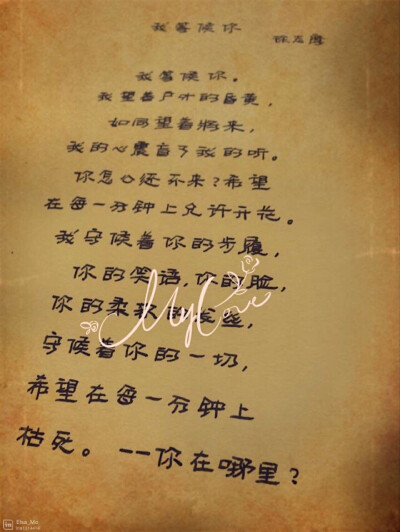 我等候你
徐志摩
我等候你。
我望着户外的昏黄,
如同望着将来,
我的心震盲了我的听。
你怎么还不来?希望
在每一分钟上允许开花。
我守候着你的步履,
你的笑语,你的脸,
你的柔软的发丝,
守候着你的一切,
希望在每一分钟上
枯死。——你在哪里?
My Love